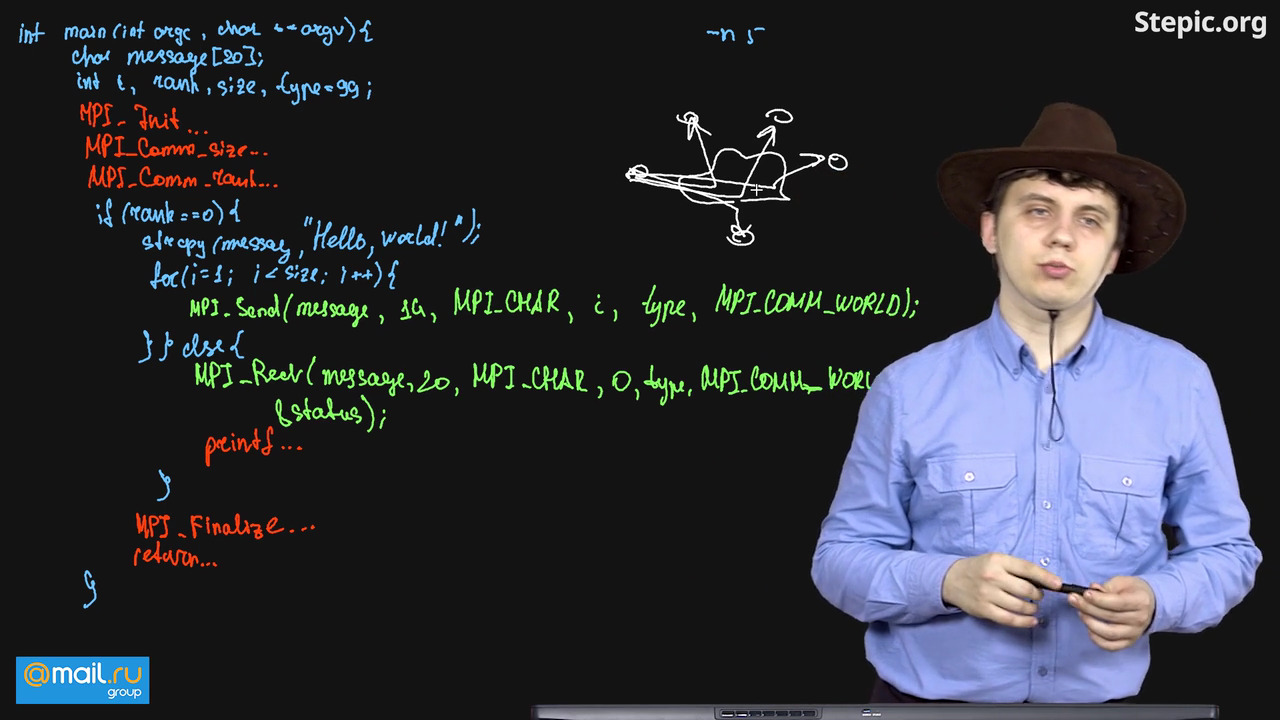 Stepic.org
int main(int argc, char **argv){
-n 5
char message[20];
int i, rank, size, type=99;
MPI_Init...
MPI_Comm_size...
MPI_Comm_rank...
if (rank==0){
strcpy(message, "Hello, world!");
for(i=1; i<size; i++){
MPI_Send(message, 14, MPI_CHAR, i, type, MPI_COMM_WORLD);
}} else {
MPI_Recv(message, 20, MPI_CHAR, 0, type, MPI_COMM_WORL
&status);
printf...
}
MPI_Finalize...
return...
}
@mail.ru
group